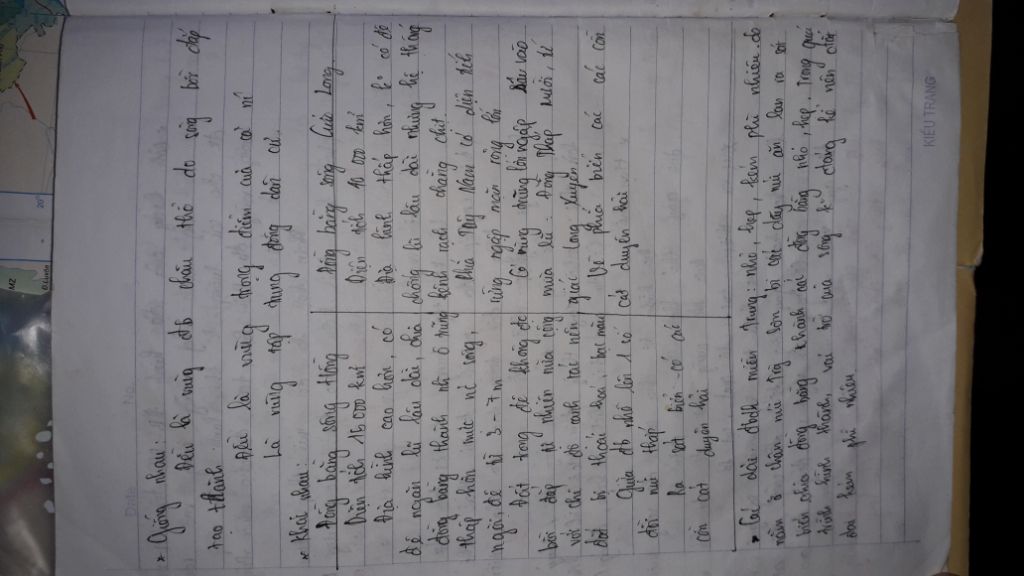 * Giống nhau:
Đều là vùng đb châu thổ do sông bồi đắp
tạo thành
Đều là vùng trọng điểm của cả nc
Là vùng tập trung đông dân cư.
* Khác nhau:
Đồng bằng sông Hồng
Diện tích 15 000 km²
Địa hình cao hơn, có
đê ngăn lũ lâu dài, chia
đồng bằng thành nh ô trũng
thấp hơn mức nc sông,
ngoài đê từ 3 - 7 m
Đất trong đê không đc
bồi đắp tự nhiên nữa cộng
với chế độ canh tác nên
đất bị thoái hoá, bạc màu
Giữa đb nhô lên 1 số
đồi núi thấp
Ra sát biển có các
cồn cát duyên hải
Đồng bằng sông Cửu Long
Diện tích 40 000 km²
Địa hình thấp hơn, ko có đê
chống lũ lâu dài nhưng hệ thống
kênh rạch chằng chịt
Phía Tây Nam có diện tích
rừng ngập mặn rộng lớn
Có vùng trũng bị ngập sâu vào
mùa lũ: Đồng Tháp Mười, tứ
giác Long Xuyên
Về phía biển các các cồn
cát duyên hải
* Các dải đbdh miền Trung: nhỏ, hẹp, kém phì nhiêu do
nằm ở chân núi Tg Sơn bị các dãy núi ăn lan ra sát
biển chia đồng bằng thành nơi đồng bằng nhỏ, hẹp. Trong quá
trình hình thành, vai trò của sông k đáng kể nên đất
đai kém phì nhiêu
KIỀU TRANG